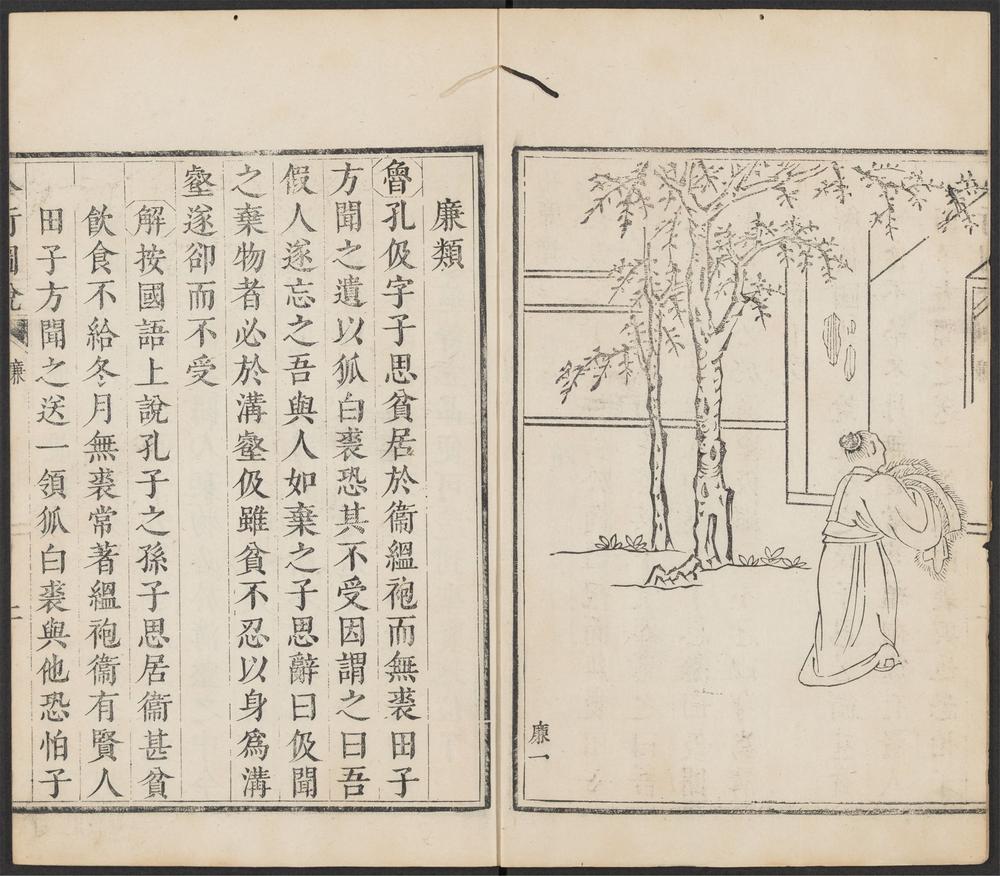 廉一
廉類
魯孔伋字子思貧居於衞縕袍而無裘田子
方聞之遺以狐白裘恐其不受因謂之曰吾
假人遂忘之吾與人如棄之子思辭曰伋聞
之棄物者必於溝壑伋雖貧不忍以身爲溝
壑遂卻而不受
解按國語上說孔子之孫子思居衞甚貧
飲食不給冬月無裘常著縕袍衞有賢人
田子方聞之送一領狐白裘與他恐怕子
行圖說
廉